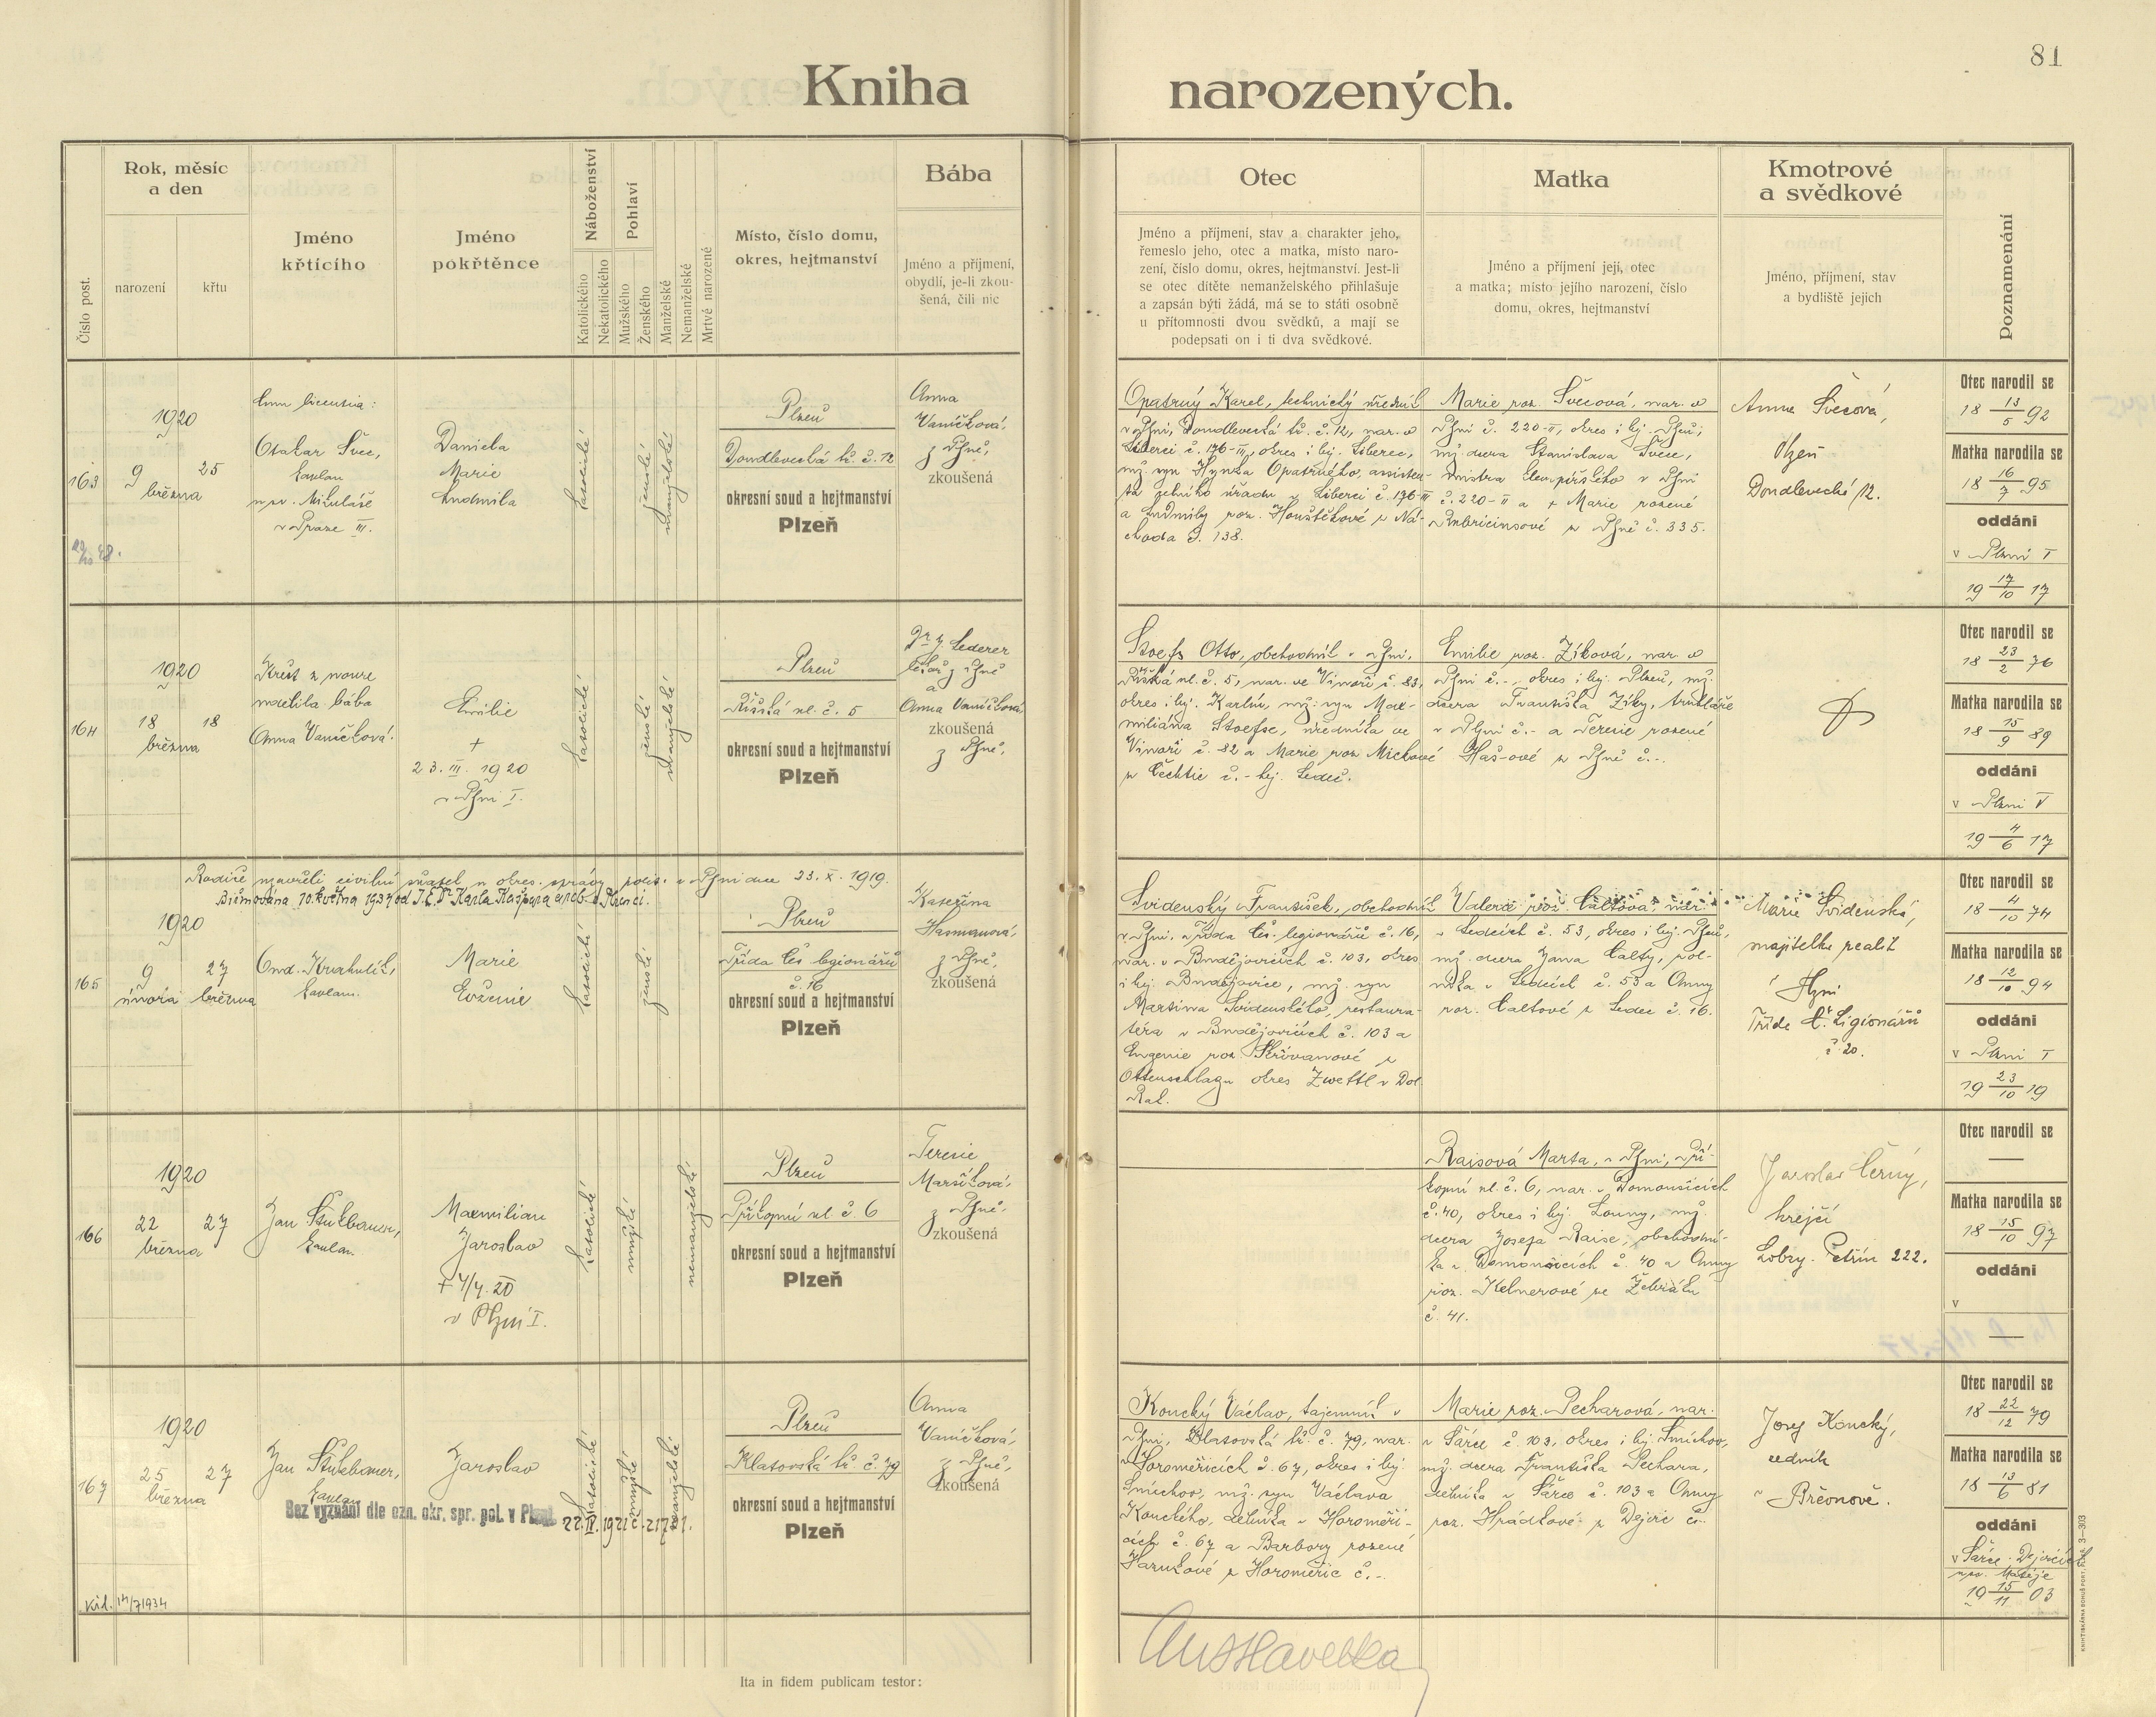 81
Kniha narozených.
Číslo post.
Rok, měsíc
a den
narození
křtu
Jméno
křtícího
Jméno
pokřtěnce
Náboženství
Katolického
Nekatolického
Pohlaví
Mužského
Ženského
Manželské
Nemanželské
Mrtvě narozené
Místo, číslo domu,
okres, hejtmanství
Bába
Jméno a příjmení,
obydlí, je-li zkou-
šená, čili nic
Otec
Jméno a příjmení, stav a charakter jeho,
řemeslo jeho, otec a matka, místo naro-
zení, číslo domu, okres, hejtmanství. Jest-li
se otec dítěte nemanželského přihlašuje
a zapsán býti žádá, má se to státi osobně
u přítomnosti dvou svědků, a mají se
podepsati on i ti dva svědkové.
Matka
Jméno a příjmení její, otec
a matka; místo jejího narození, číslo
domu, okres, hejtmanství
Kmotrové
a svědkové
Jméno, příjmení, stav
a bydliště jejich
Poznamenání
163
1920
9
března
25
cum licentia:
Otakar Švec,
kaplan
u sv. Mikuláše
v Praze III.
Daniela
Marie
Ludmila
katolické
ženské
manželské
Plzeň
Doudlevecká tř. č. 12
okresní soud a hejtmanství
Plzeň
Anna
Vaníčková,
z Plzně,
zkoušená
Opatrný Karel, technický úředník
v Plzni, Doudlevecká tř. č. 12, nar. v
Liberci č. 176-III, okres i hej. Liberec,
mž. syn Hynka Opatrného, assisten-
ta celního úřadu v Liberci č. 176-III
a Ludmily roz. Houštěkové z Ná-
choda č. 138.
Marie roz. Švecová, nar. v
Plzni č. 220-II, okres i hej. Plzeň,
mž. dcera Stanislava Švece,
mistra klempířského v Plzni
č. 220-II a + Marie rozené
z Plzně č. 335.
Anna Švecová,
Plzeň
Doudlevecká 12.
Otec narodil se
18 13/5 92
Matka narodila se
18 16/7 95
oddáni
v Plzni I
19 17/10 17
164
1920
18
března
18
Křest z nouze
udělila bába
Anna Vaníčková.
Emilie
+
23. III. 1920
v Plzni I.
katolické
ženské
manželské
Plzeň
Říšská ul. č. 5
okresní soud a hejtmanství
Plzeň
Dr. J. Lederer
lékař z Plzně
a
Anna Vaníčková
zkoušená
z Plzně,
Stoefs Otto, obchodník v Plzni,
Říšská ul. č. 5, nar. ve Vinoři č. 83,
okres i hej. Karlín, mž. syn Max-
miliána Stoefse, úředníka ve
Vinoři č. 82 a Marie roz. Michové
z Čechtic č. - hej. Ledeč.
Emilie roz. Zíková, nar. v
Plzni č. -, okres i hej. Plzeň, mž.
dcera Františka Zíky, truhláře
v Plzni č. - a Terezie rozené
Haš-ové z Plzně č. -.
Otec narodil se
18 23/2 76
Matka narodila se
18 15/9 89
oddáni
v Plzni V
19 4/6 17
Rodiče uzavřeli civilní sňatek u okres. správy polit. v Plzni dne 23. X. 1919.
Biřmována 10. května 1934 od J. E. Dr. Karla Kašpara arcib. v Plzni.
165
1920
9
února
27
března
Ond. Krahulík,
kaplan.
Marie
Evženie
katolické
ženské
Plzeň
Třída čs. legionářů
č. 16
okresní soud a hejtmanství
Plzeň
Kateřina
Hasmanová,
z Plzně,
zkoušená
Svidenský František, obchodník
v Plzni, třída čs. legionářů č. 16,
nar. v Budějovicích č. 103, okres
i hej. Budějovice, mž. syn
Martina Svidenského, restaura-
téra v Budějovicích č. 103 a
Eugenie roz. Skřivanové z
Ottenschlagu okres Zwettl v Dol.
Rak.
Valerie roz. Caltová, nar.
v Ledcích č. 53, okres i hej. Plzeň,
mž. dcera Jana Calty, rol-
níka v Ledcích č. 53 a Anny
roz. Caltové z Ledec č. 16.
Marie Svidenská,
majitelka realit
v Plzni
Třída Č. Legionářů
č. 20.
Otec narodil se
18 4/10 74
Matka narodila se
18 12/10 94
oddáni
v Plzni I
19 23/10 19
166
1920
22
března
27
kaplan.
Maxmilian
Jaroslav
+ 4/4. 20
v Plzni I.
katolické
mužské
nemanželské
Plzeň
Příkopní ul. č. 6
okresní soud a hejtmanství
Plzeň
Terezie
Maršíková,
z Plzně,
zkoušená
Raisová Marta, v Plzni, Pří-
kopní ul. č. 6, nar. v Domoušicích
č. 40, okres i hej. Louny, mž.
dcera Josefa Raise, obchodní-
ka v Domoušicích č. 40 a Anny
roz. Kelnerové ze Žebráku
č. 41.
Jaroslav Černý,
krejčí
Lobzy. Petřín 222.
Otec narodil se
—
Matka narodila se
18 15/10 97
oddáni
v
—
167
1920
25
března
27
kaplan
Jaroslav
Bez vyznání dle ozn. okr. spr. pol. v Plzni 22. IV. 1921 č. 21731.
katolické
mužské
manželské
Plzeň
Klatovská tř. č. 79
okresní soud a hejtmanství
Plzeň
Anna
Vaníčková,
z Plzně,
zkoušená
Koucký Václav, tajemník v
Plzni, Klatovská tř. č. 79, nar.
v Horoměřicích č. 67, okres i hej.
Smíchov, mž. syn Václava
Kouckého, dělníka v Horoměři-
cích č. 67 a Barbory rozené
Haruchové z Horoměřic č. -.
Marie roz. Pecharová, nar.
v Šárce č. 103, okres i hej. Smíchov,
mž. dcera Františka Pechara,
dělníka v Šárce č. 103 a Anny
roz. Hrádkové z Dejvic č. -.
Josef Koucký,
rolník
v Břevnově.
Otec narodil se
18 22/12 79
Matka narodila se
18 13/6 81
oddáni
v Šárce - Dejvicích
u sv. Matěje
19 15/11 03
14/7 1934
Ita in fidem publicam testor: